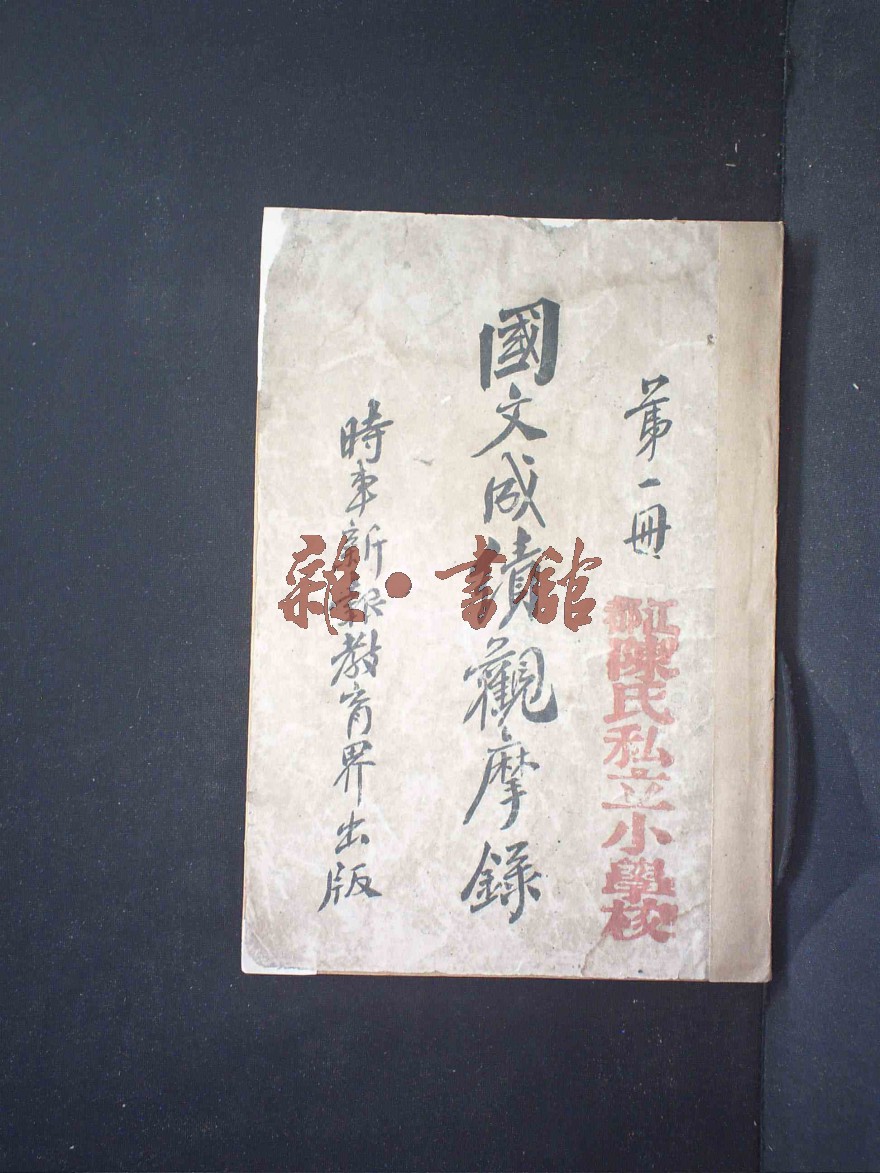 第一冊
國文成績觀摩錄
時事新報教育界出版
陳氏私立小學校
雜·書館